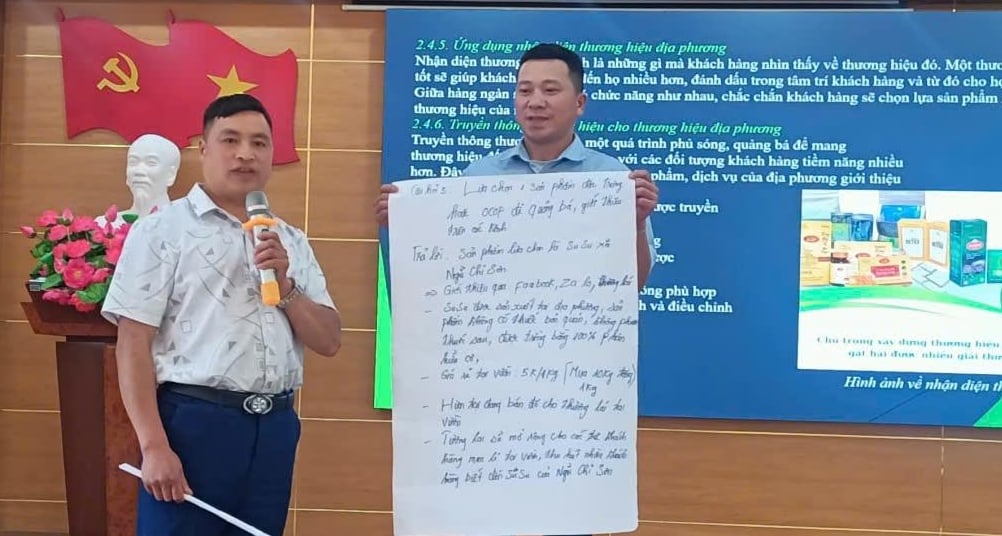 2.4.5. Ứng dụng nhận diện thương hiệu địa phương
Nhận diện thương là những gì mà khách hàng nhìn thấy về thương hiệu đó. Một thươ
tốt sẽ giúp khách đến họ nhiều hơn, đánh dấu trong tâm trí khách hàng và từ đó cho họ
Giữa hàng ngàn chức năng như nhau, chắc chắn khách hàng sẽ chọn lựa sản phẩm
thương hiệu của
2.4.6. Truyền thông hiệu cho thương hiệu địa phương
Truyền thông thươ một quá trình phủ sóng, quảng bá để mang
thương hiệu với các đối tượng khách hàng tiềm năng nhiều
hơn. Đây phẩm, dịch vụ của địa phương giới thiệu
ược truyền
ược
óng phù hợp
h và điều chỉnh
Chú trọng xây dựng thương hiệu
gặt hái được nhiều giải thư
Hình ảnh về nhận diện th
Lựa chọn 1 sản phẩm đặc trưng
hoặc OCOP để quảng bá, giới thiệu
Trả lời: Sản phẩm lựa chọn là Su Su xã
Ngũ Chỉ Sơn
=> Giới thiệu qua Facebook, Zalo, thương lái
- SuSu được sản xuất tại địa phương, sản
phẩm không có thuốc bảo quản, không phun
thuốc sâu, được trồng bằng 100% phân
hữu cơ,
- Giá cả tại vườn: 5K/1Kg (Mua 10Kg tặng
1Kg
- Hiện tại đang bán đổ cho thương lái tại
vườn
- Tương lai sẽ mở rộng cho các khách
hàng mua lẻ tại vườn, thu hút nhiều khách
hàng biết đến SuSu của Ngũ Chỉ Sơn